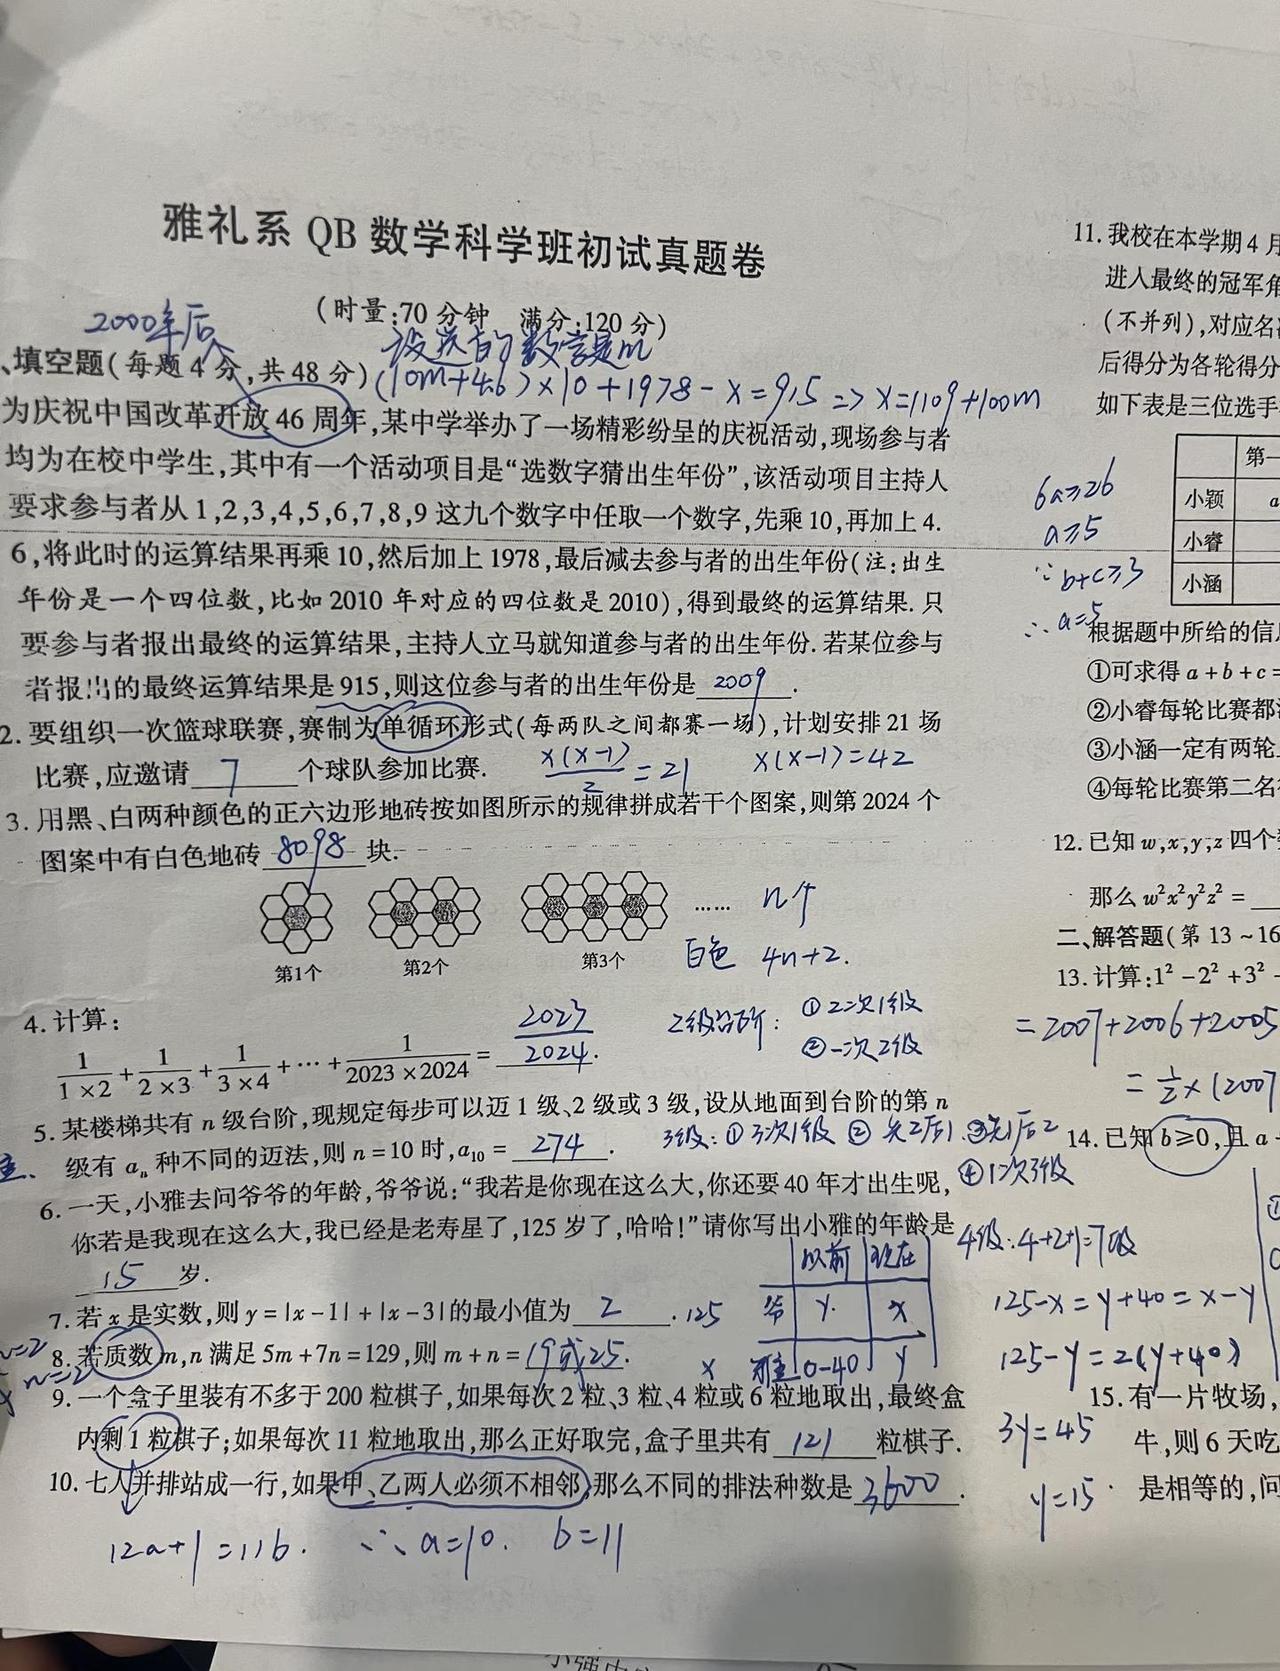 雅礼系 QB 数学科学班初试真题卷
(时量:70 分钟 满分:120 分)
2000年后
设选的数字是m
、填空题(每题 4 分,共 48 分)
(10m+4.6)×10+1978-x=915=>x=1109+100m
为庆祝中国改革开放 46 周年,某中学举办了一场精彩纷呈的庆祝活动,现场参与者
均为在校中学生,其中有一个活动项目是“选数字猜出生年份”,该活动项目主持人
要求参与者从 1,2,3,4,5,6,7,8,9 这九个数字中任取一个数字,先乘 10,再加上 4.
6,将此时的运算结果再乘 10,然后加上 1978,最后减去参与者的出生年份(注:出生
年份是一个四位数,比如 2010 年对应的四位数是 2010),得到最终的运算结果. 只
要参与者报出最终的运算结果,主持人立马就知道参与者的出生年份. 若某位参与
者报出的最终运算结果是 915,则这位参与者的出生年份是 2009 .
2. 要组织一次篮球联赛,赛制为单循环形式(每两队之间都赛一场),计划安排 21 场
比赛,应邀请 7 个球队参加比赛.
x(x-1)/2=21 x(x-1)=42
3. 用黑、白两种颜色的正六边形地砖按如图所示的规律拼成若干个图案,则第 2024 个
图案中有白色地砖 8098 块.
…… n个
第1个 第2个 第3个
白色 4n+2.
4. 计算:
1/(1×2)+1/(2×3)+1/(3×4)+…+1/(2023×2024)= 2023/2024 .
2级台阶: ①2次1级
②一次2级
5. 某楼梯共有 n 级台阶,现规定每步可以迈 1 级、2 级或 3 级,设从地面到台阶的第 n
级有 aₙ 种不同的迈法,则 n=10 时,a₁₀= 274 .
3级:①3次1级 ②先2后1 ③先1后2
④1次3级
4级:4+2+1=7级
6. 一天,小雅去问爷爷的年龄,爷爷说:“我若是你现在这么大,你还要 40 年才出生呢,
你若是我现在这么大,我已经是老寿星了,125 岁了,哈哈!”请你写出小雅的年龄是
15 岁.
以前 现在
爷 y x
雅 0-40 y
125
x
125-x=y+40=x-y
125-y=2(y+40)
3y=45
y=15
7. 若 x 是实数,则 y=|x-1|+|x-3|的最小值为 2 .
8. 若质数 m,n 满足 5m+7n=129,则 m+n= 19或25.
n=2
9. 一个盒子里装有不多于 200 粒棋子,如果每次 2 粒、3 粒、4 粒或 6 粒地取出,最终盒
内剩 1 粒棋子;如果每次 11 粒地取出,那么正好取完,盒子里共有 121 粒棋子.
10. 七人并排站成一行,如果甲、乙两人必须不相邻,那么不同的排法种数是 3600 .
12a+1=11b. ∴a=10. b=11
11. 我校在本学期 4 月
进入最终的冠军角
(不并列),对应名
后得分为各轮得分
如下表是三位选手
第一
小颖 a
小睿
小涵
6a≥26
a≥5
∵b+c≥3
∴a=5
根据题中所给的信
①可求得 a+b+c=
②小睿每轮比赛都
③小涵一定有两轮
④每轮比赛第二名
12. 已知 w,x,y,z 四个
那么 w²x²y²z²=
二、解答题(第 13~16
13. 计算:1²-2²+3²-
=2007+2006+2005
=1/2×(2007
14. 已知 b≥0,且 a
15. 有一片牧场,
牛,则 6 天吃
是相等的,问